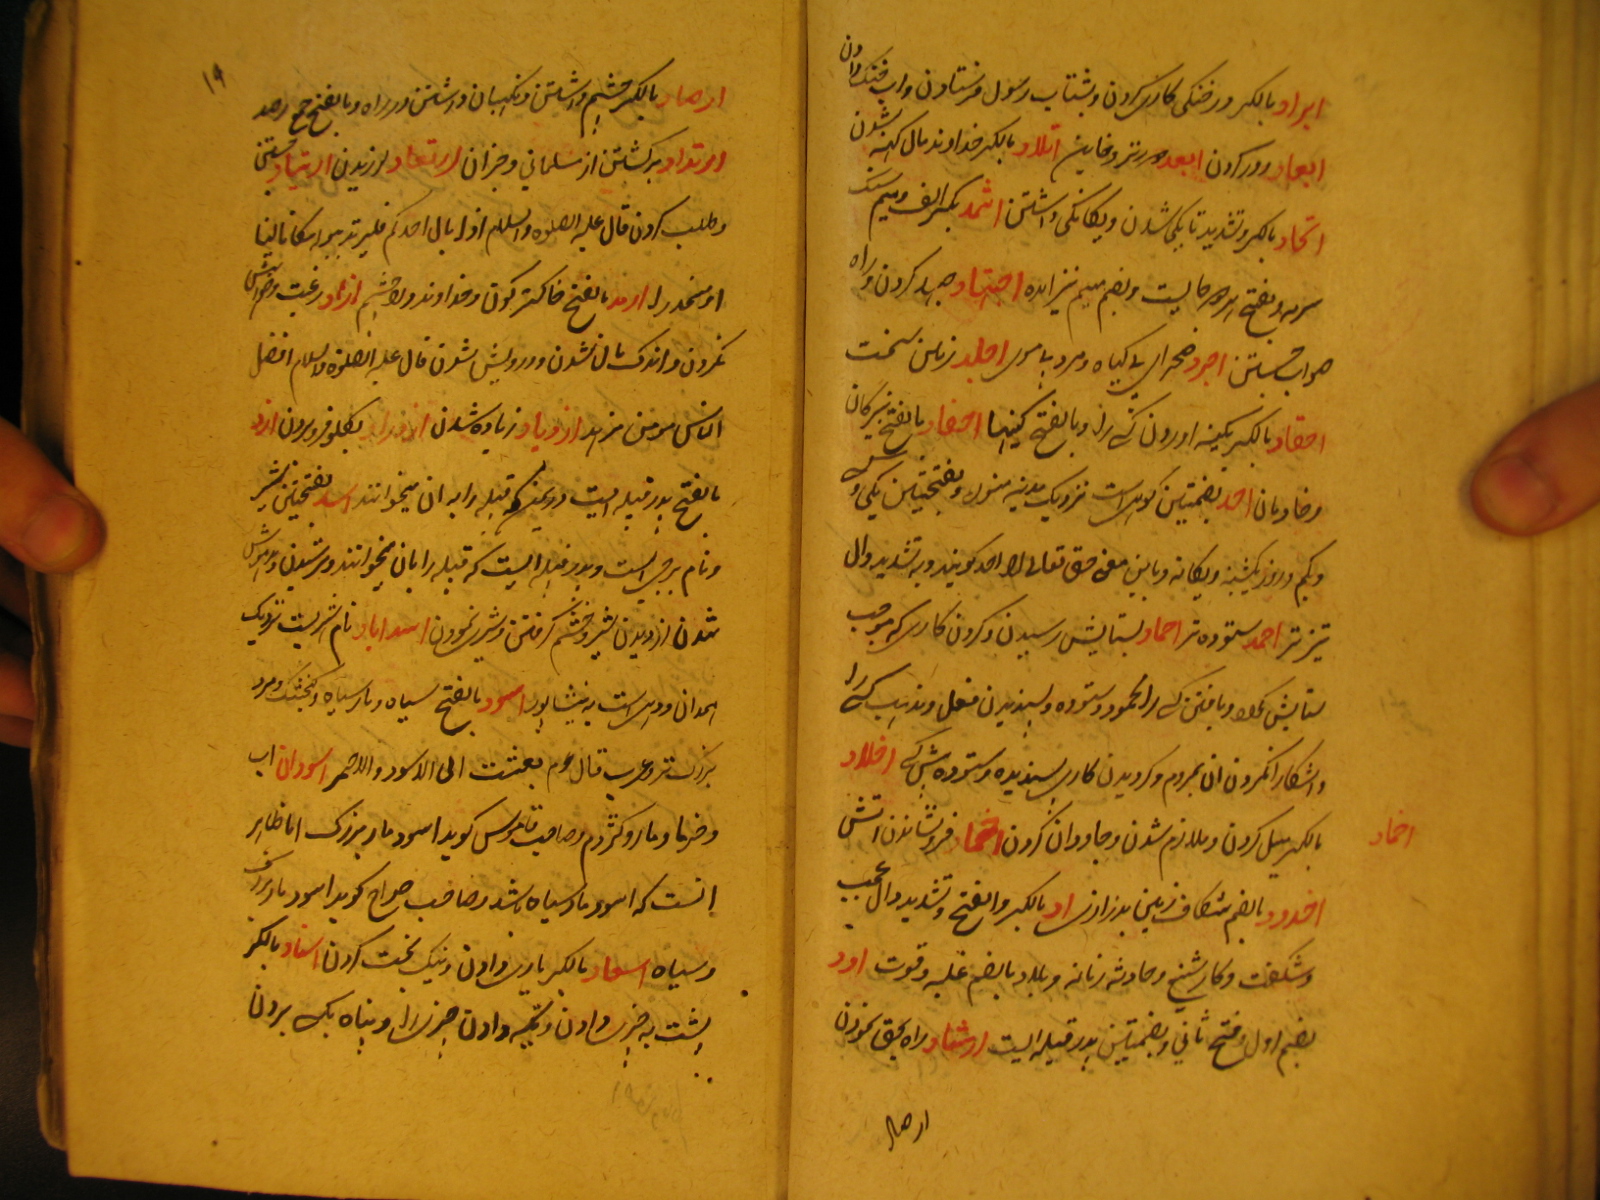 ابراد بالکسر در خنکی کاری کردن و بشتاب رسول فرستادن و آب خنک دادن
ابعاد دور کردن ابعد دورتر و خاین اتلاد بالکسر خداوند مال کهنه شدن
اتحاد بالکسر و تشدید تا یکی شدن و یکانکی داشتن اثمد بکسر الف و میم سنک
سرمه و بفتح و بضم میم نیز آمده اجتهاد جهد کردن و راه
صواب جستن اجرد صحرای بی کیاه و مرد بی موی اجلد زمین سخت
احقاد بالکسر بکینه آوردن کسی را و بالفتح کینها احفاد بالفتح نبیرکان
و خادمان احد بضمتین کوهیست نزدیک مدینه منوره و بفتحتین یکی و کسی
و یکم و روز یکشنبه و یکانه و باین معنی حق تعالی را احد کویند و به تشدید دال
تیزتر احمد ستوده تر احماد بستایش رسیدن و کردن کاری که موجب
ستایش بود و یافتن کسی را محمود و ستوده و پسندیدن فعل و مذهب کسی را
و آشکارا نکردن آن بمردم و کردیدن کاری پسندیده و ستوده پیش کسی اخلاد
بالکسر میل کردن و ملازم شدن و جاودان کردن اخماد فرونشاندن آتش
اخماد
اخدود بالضم شکاف زمین بدرازی اد بالکسر و الفتح و تشدید دال عجب
و شکفت و کار شنیع و حادثه زمانه و بلا و بالضم غلبه و قوت ادد
بضم اول و فتح ثانی و بضمتین پدر قبیله ایست ارشاد راه بحق نمودن
ارصاد
۱۴
ارصاد بالکسر چشم داشتن و نکهبان داشتن در راه و بالفتح جمع رصد
ارتداد برکشتن از مسلمانی و جز آن ارتعاد لرزیدن ارتیاد جستن
و طلب کردن قال علیه الصلوة و السلام اذا بال احدکم فلیرتد لبوله مکانا لینا
او منحدرا ارمد بالفتح خاکستر کون و خداوند درد چشم ازهاد رغبت و خواهش
نکردن و اندک مال شدن و درویش شدن قال علیه الصلوة و السلام افضل
الناس مومن مزهد ازدیاد زیاده شدن ازدراد بکلو فرو بردن ازد
بالفتح پدر قبیله ایست در یمن که قبیله را به آن میخوانند اسد بفتحتین شیر
و نام برجیست و پدر قبیله ایست که قبیله را بآن میخوانند و ترسیدن و مدهوش
شدن از دیدن شیر و خشم کرفتن و شیری نمودن اسدآباد نام شهریست نزدیک
همدان و دهیست به نیشاپور اسود بالفتح سیاه و مار سیاه و کنجشک و مرد
بزرکتر و عرب قال عم بعثت الی الاسود و الاحمر اسودان آب
و خرما و مار و کژدم و صاحب قاموس کوید اسود مار بزرک اما ظاهر
آنست که اسود مار سیاه باشد و صاحب صراح کوید اسود مار بزرک
و سیاه اسعاد بالکسر یاری دادن و نیک بخت کردن اسناد بالکسر
پشت به چیزی دادن و تکیه دادن چیزی را و پناه بکسی بردن